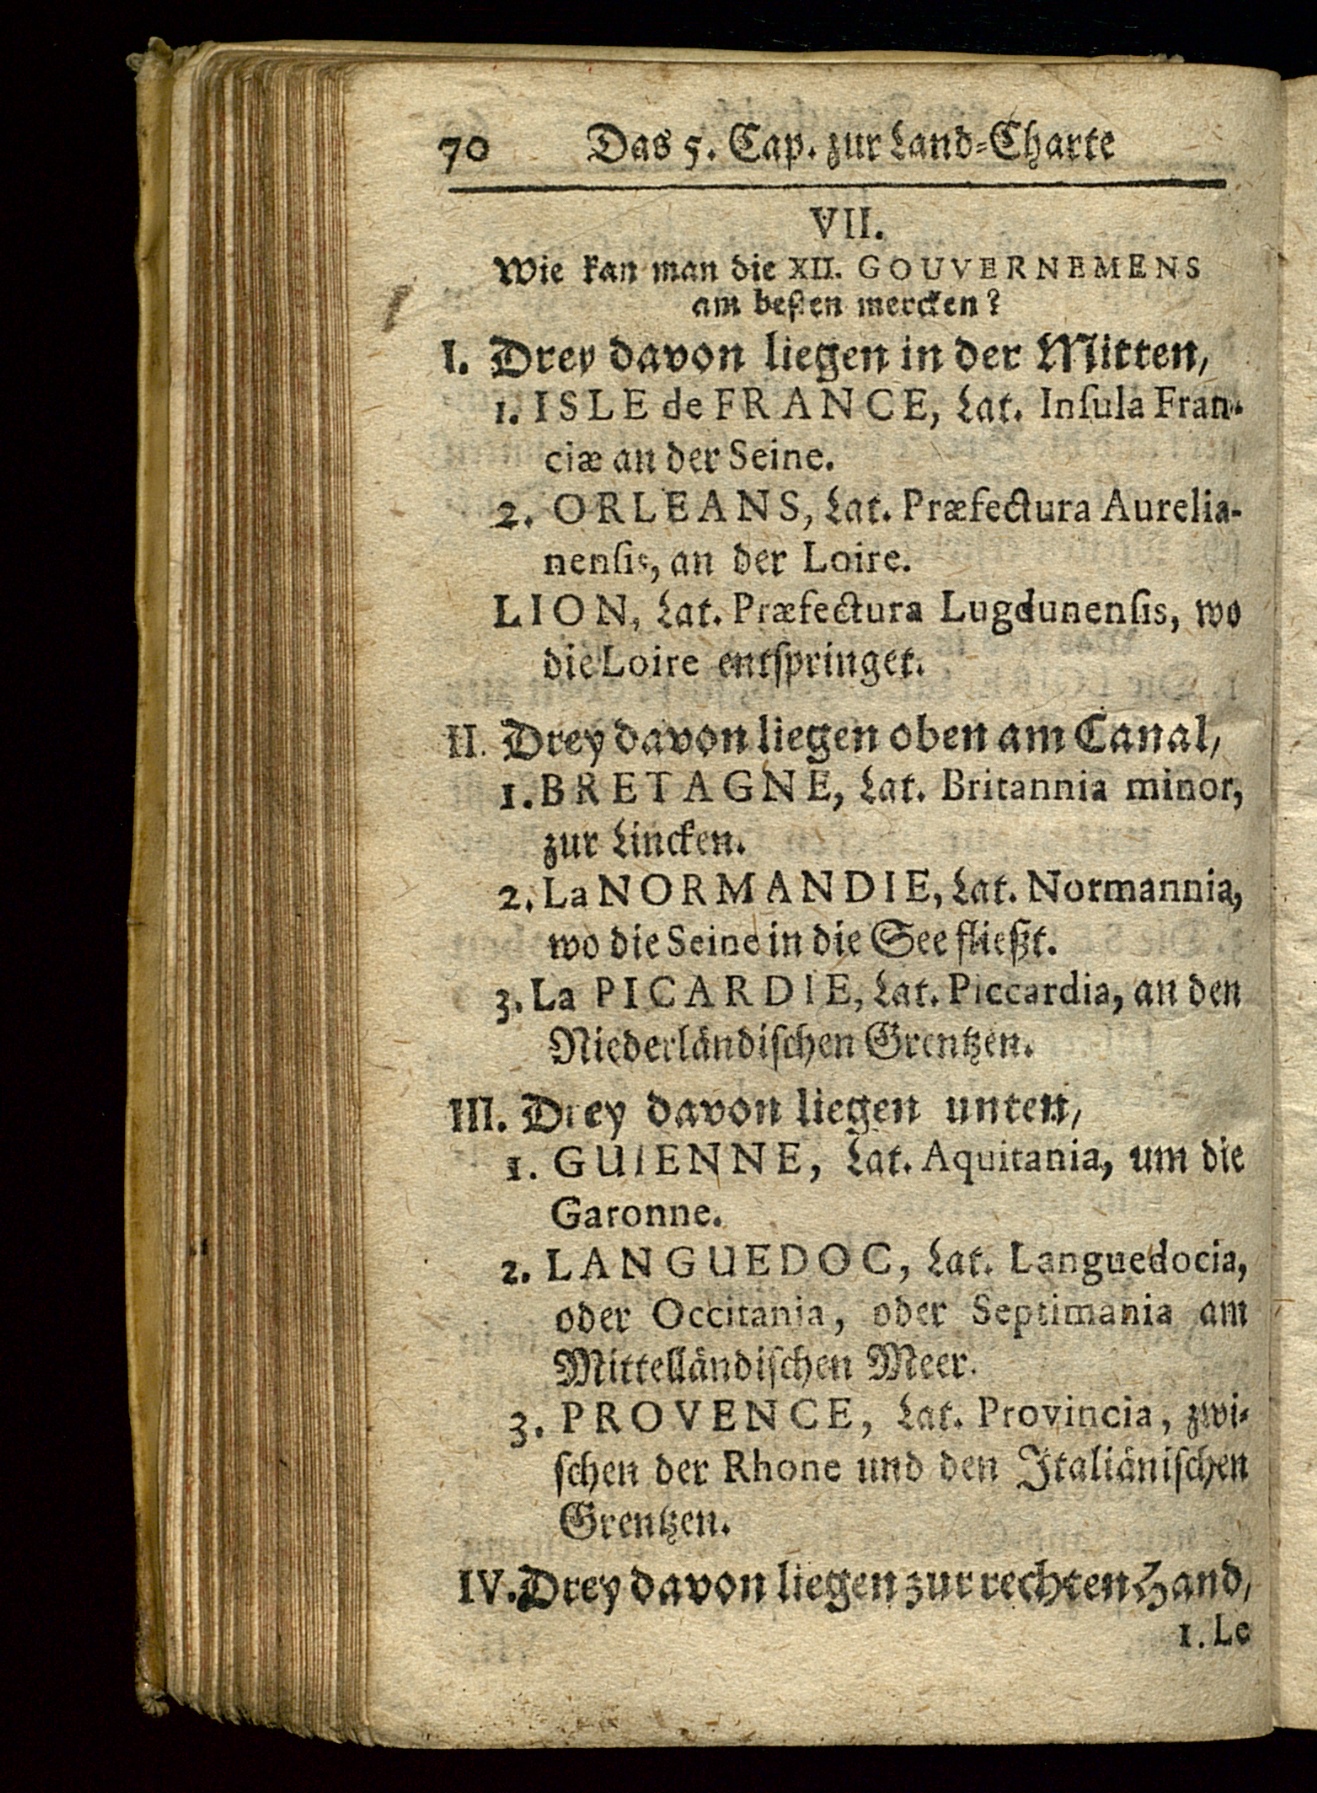 70 Das 5. Cap. zur Land-Charte
VII.
Wie kan man die XII. GOUVERNEMENS
am besten mercken?
I. Drey davon liegen in der Mitten,
1. ISLE de FRANCE, Lat. Inſula Fran-
ciæ an der Seine.
2. ORLEANS, Lat. Præfectura Aurelia-
nenſis, an der Loire.
LION, Lat. Præfectura Lugdunenſis, wo
die Loire entſpringet.
II. Drey davon liegen oben am Canal,
1. BRETAGNE, Lat. Britannia minor,
zur Lincken.
2. La NORMANDIE, Lat. Normannia,
wo die Seine in die See fließt.
3. La PICARDIE, Lat. Piccardia, an den
Niederländiſchen Grentzen.
III. Drey davon liegen unten,
1. GUIENNE, Lat. Aquitania, um die
Garonne.
2. LANGUEDOC, Lat. Languedocia,
oder Occitania, oder Septimania am
Mittelländiſchen Meer.
3. PROVENCE, Lat. Provincia, zwi-
ſchen der Rhone und den Italiäniſchen
Grentzen.
IV. Drey davon liegen zur rechten Hand,
1. Le